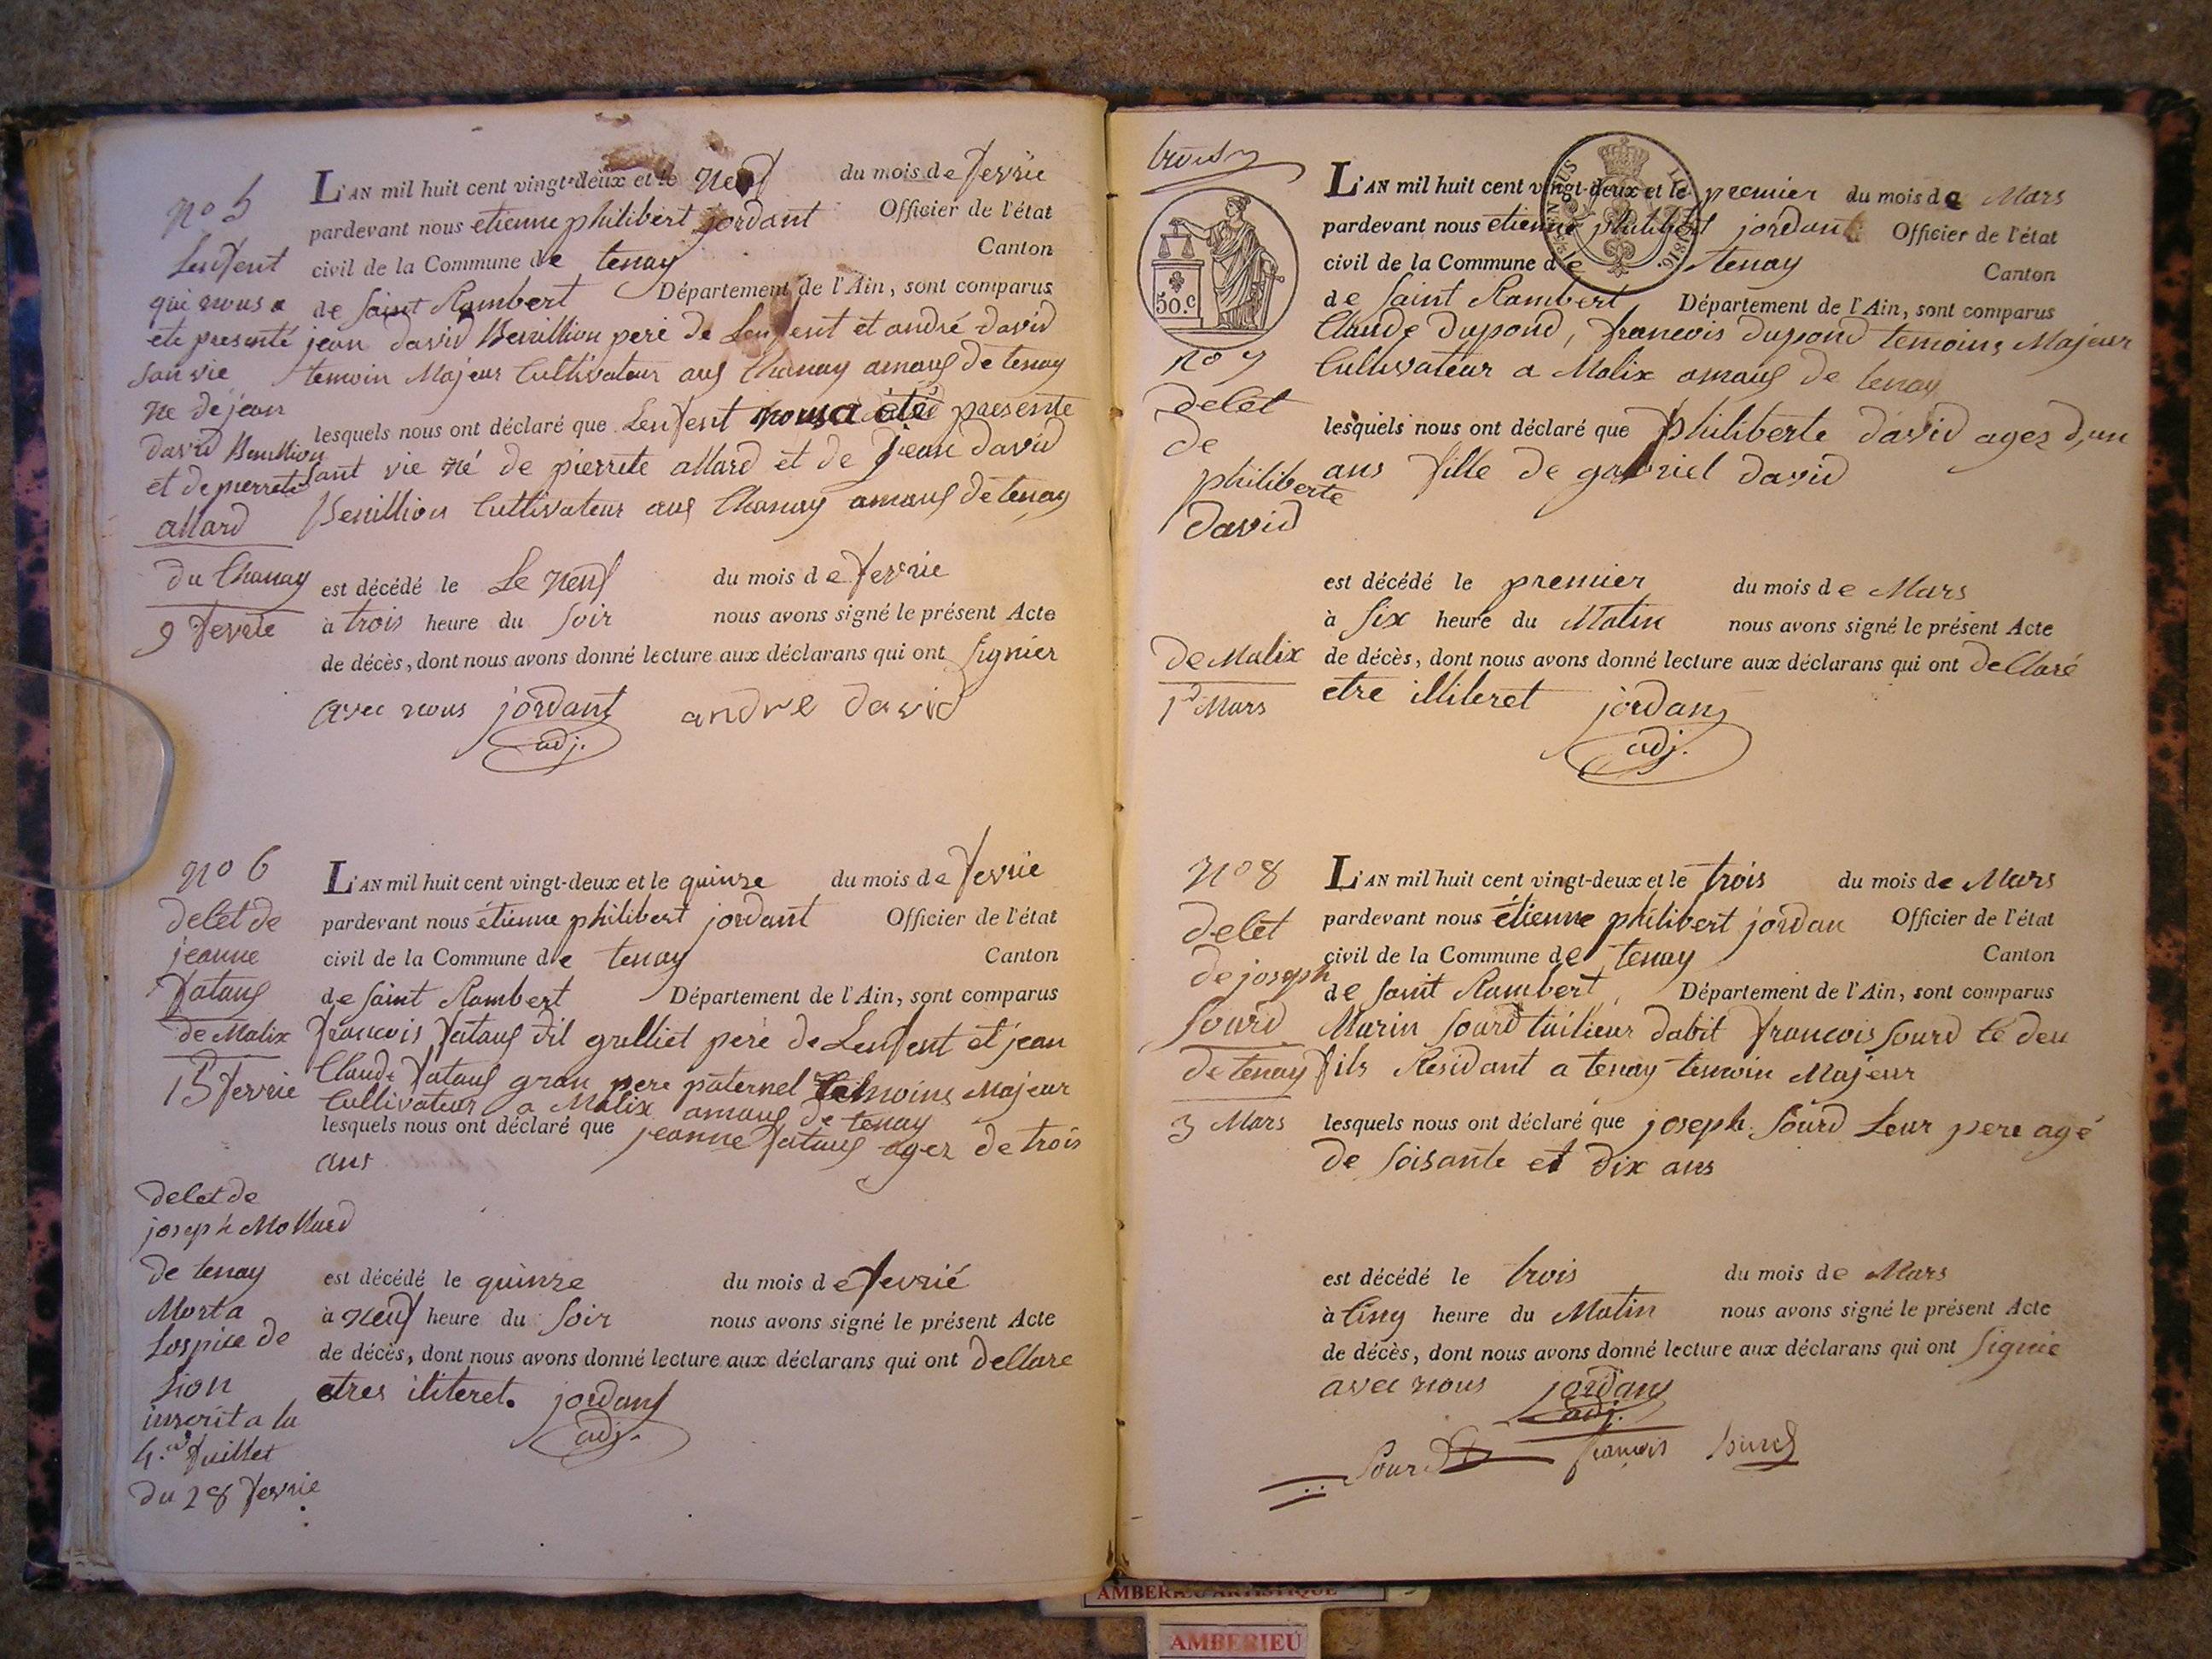 no 5
Lenfent
qui nous a
ete presenté
san vie
ne de jean
david Benillion
et de pierrete
allard
du Chanay
9 fevrie
L'AN mil huit cent vingt-deux et le neuf du mois de fevrie
pardevant nous etienne philibert jordant Officier de l'état
civil de la Commune de tenay Canton
de saint Rambert Département de l'Ain, sont comparus
jean david Benillion pere de Lenfent et andré david
temoin Majeur Cultivateur aus Chanay amaus de tenay
lesquels nous ont déclaré que Lenfent nous a été presente
sant vie né de pierrete allard et de jean david
Benillion Cultivateur aus Chanay amaus de tenay
est décédé le Le neuf du mois de fevrie
à trois heure du soir nous avons signé le présent Acte
de décès, dont nous avons donné lecture aux déclarans qui ont signier
avec nous jordant andre david
adj.
no 6
delet de
jeanne
fataus
de Malix
15 fevrie
L'AN mil huit cent vingt-deux et le quinze du mois de fevrie
pardevant nous étienne philibert jordant Officier de l'état
civil de la Commune de tenay Canton
de saint Rambert Département de l'Ain, sont comparus
francois fataus dit grelliet pere de Lenfent et jean
Claude fataus gran pere paternel temoins Majeur
Cultivateur a Malix amaus de tenay
lesquels nous ont déclaré que jeanne fataus agez de trois
ans
est décédé le quinze du mois de fevrié
à neuf heure du soir nous avons signé le présent Acte
de décès, dont nous avons donné lecture aux déclarans qui ont dellare
etres iliteret. jordant
adj.
delet de
joseph Mollard
de tenay
Mort a
Lospice de
Lion
inscrit a la
4.e fuillet
du 28 fevrie
trois
50.C
no 7
delet
de
philiberte
david
de Malix
1d Mars
L'AN mil huit cent vingt-deux et le premier du mois de Mars
pardevant nous etienne philibert jordant Officier de l'état
civil de la Commune de tenay Canton
de saint Rambert Département de l'Ain, sont comparus
Claude dupond, francois dupond temoins Majeur
Cultivateur a Malix amaus de tenay
lesquels nous ont déclaré que philiberte david agez d,un
ans fille de gabriel david
est décédé le premier du mois de Mars
à six heure du Matin nous avons signé le présent Acte
de décès, dont nous avons donné lecture aux déclarans qui ont dellaré
etre illiteret jordant
adj.
no 8
delet
de joseph
sourd
de tenay
3 Mars
L'AN mil huit cent vingt-deux et le trois du mois de Mars
pardevant nous étienne philibert jordan Officier de l'état
civil de la Commune de tenay Canton
de saint Rambert, Département de l'Ain, sont comparus
Marin sourd tailieur dabit francois sourd te deu
fils Residant a tenay temoin Majeur
lesquels nous ont déclaré que joseph sourd Leur pere agé
de soisante et dix ans
est décédé le trois du mois de Mars
à Cinq heure du Matin nous avons signé le présent Acte
de décès, dont nous avons donné lecture aux déclarans qui ont signié
avec nous jordant
adj.
Sourd françois sourd
AMBERIEU ARTISTIQUE
AMBERIEU